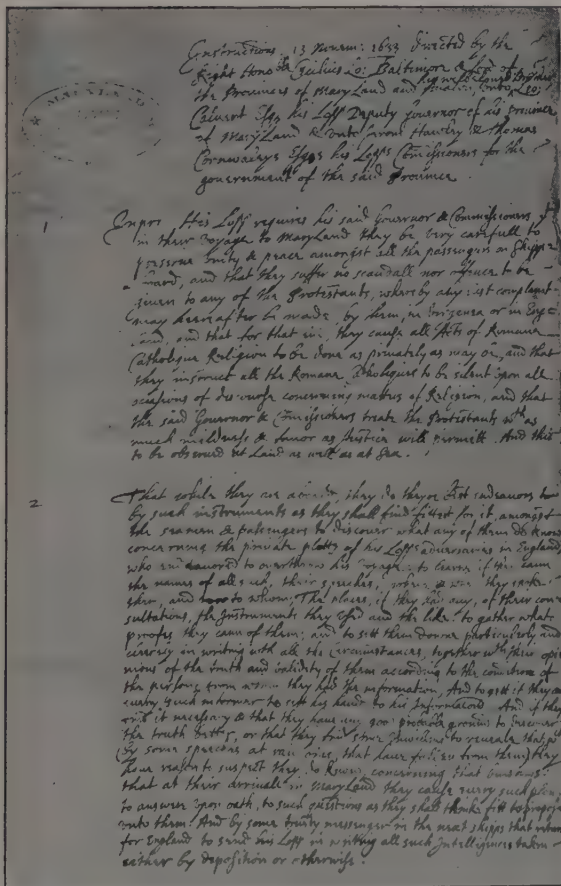 Instructions 13 Novem: 1633 directed by the
Right Honoble Cecilius Lo: Baltimore & Lord of
the Provinces of Mary Land and Avalon unto his well beloved Brother Leo:
Calvert Esqr his Lopps Deputy Governor of his province
of Mary Land & unto Jerom Hawley & Thomas
Cornwaleys Esqrs his Lopps Comissioners for the
government of the said Province.
1
Inpri: His Lopp requires his said Governor & Commissioners yt
in their voyage to Mary Land they be very carefull to
preserve unity & peace amongst all the passengers on Shipp-
board, and that they suffer no scandall nor offence to be
given to any of the Protestants, whereby any just complaint
may heereafter be made, by them, in Virginea or in Eng-
land, and that for that end, they cause all Acts of Romane
Catholique Religion to be done as privately as may be, and that
they instruct all the Romane Catholiques to be silent upon all
occasions of discourse concerning matters of Religion; and that
the said Governor & Comissioners treate the Protestants wth as
much mildness & favor as Justice will permitt. And this
to be observed at Land as well as at Sea.
2
That while they are aboard, they do theyre best endeavors
by such instruments as they shall find fittest for it, amongst
the seamen & passengers to discover what any of them do know
concerning the private plotts of his Lopps adversaries in England
who endeavored to overthrow his voyage: to learne if they cann
the names of all such, their speeches, where & when they spoke
them, and to whom; The places, if they had any, of their con-
sultations, the Instruments they used and the like: to gather what
proofes they cann of them; and to sett them downe particulerly and
cleerely in writing with all the circumstances, together wth their opi-
nions of the truth and validity of them according to the condition of
the persons from whom they had the information, And to gett if they can
every such informer to sett his hand to his Informacion. And if they
find it necessary & that they have any good probable ground to discover
the truth better, or that they find some unwilling to reveale that wch
(by some speeches at unawares, that have fallen from them) they
have reason to suspect they do know concerning that buisness:
that at their arrivall in Mary Land they cause every such person
to answer upon oath, to such questions as they shall thinke fitt to propose
unto them: And by some trusty messenger in the next shipps that returne
for England to send his Lopp in writing all such Intelligences taken
either by deposition or otherwise.